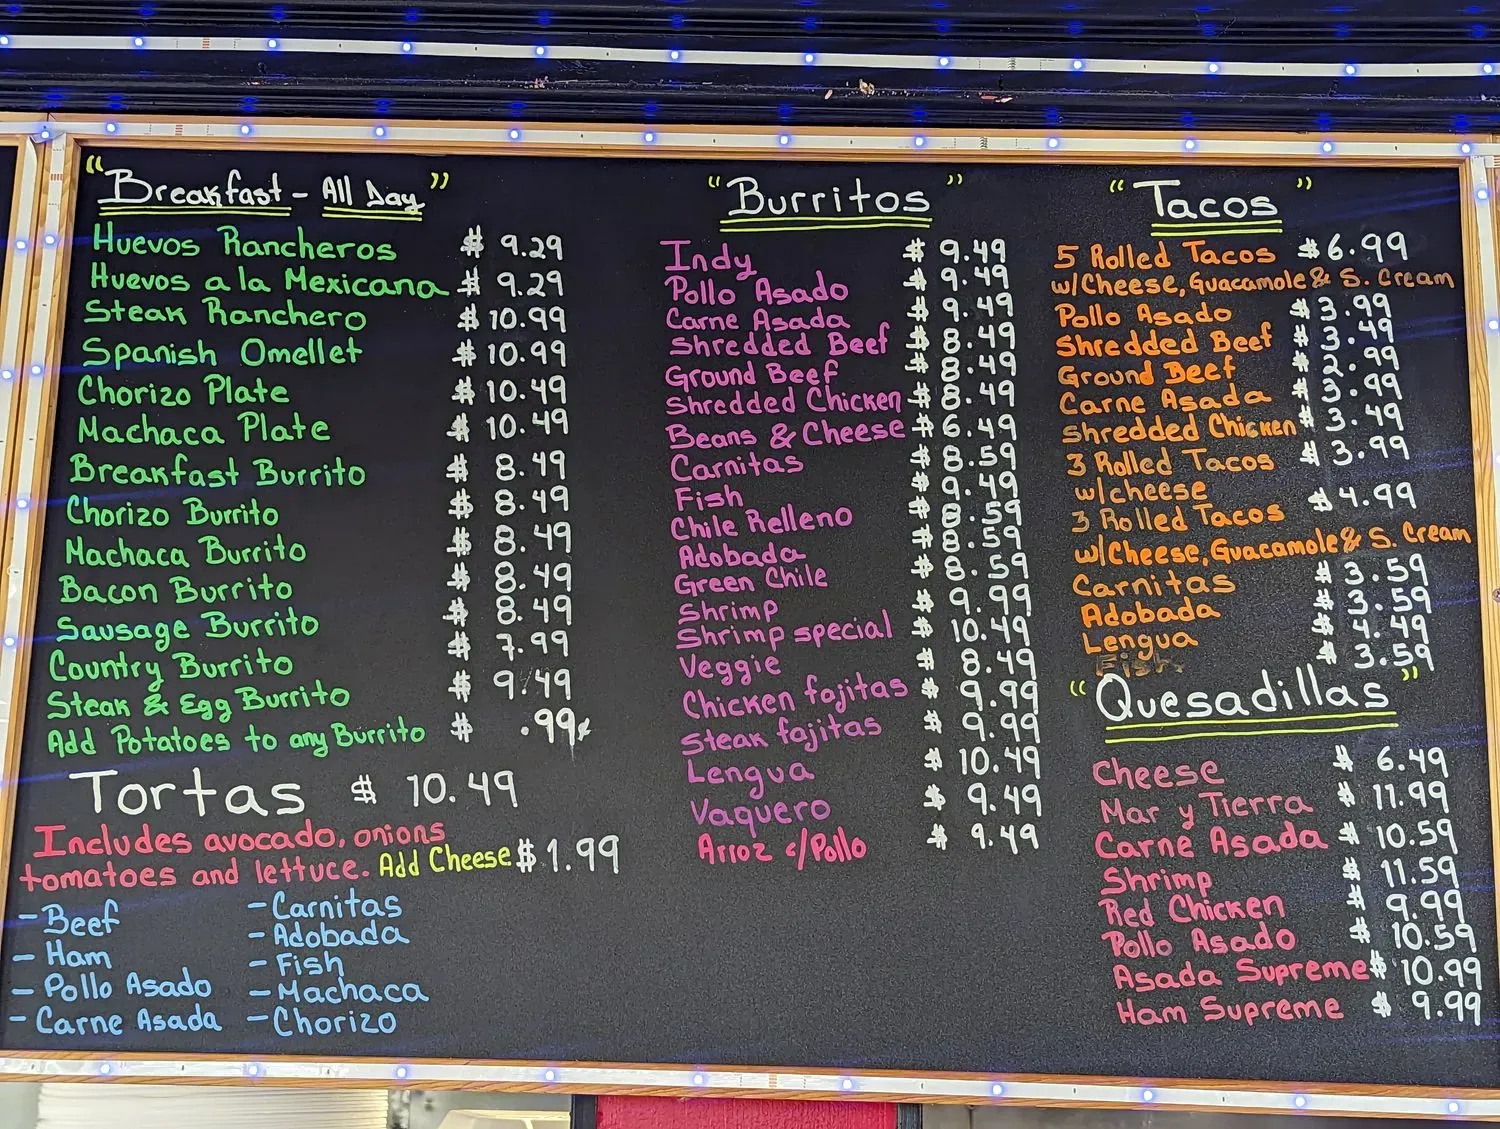 "Breakfast - All Day"
Huevos Rancheros $ 9.29
Huevos a la Mexicana $ 9.29
Steak Ranchero $ 10.99
Spanish Omellet $ 10.99
Chorizo Plate $ 10.49
Machaca Plate $ 10.49
Breakfast Burrito $ 8.49
Chorizo Burrito $ 8.49
Machaca Burrito $ 8.49
Bacon Burrito $ 8.49
Sausage Burrito $ 8.49
Country Burrito $ 7.99
Steak & Egg Burrito $ 9.49
Add Potatoes to any Burrito $ .99¢
Tortas $ 10.49
Includes avocado, onions
tomatoes and lettuce. Add Cheese $ 1.99
- Beef
- Ham
- Pollo Asado
- Carne Asada
- Carnitas
- Adobada
- Fish
- Machaca
- Chorizo
"Burritos"
Indy $ 9.49
Pollo Asado $ 9.49
Carne Asada $ 9.49
Shredded Beef $ 8.49
Ground Beef $ 8.49
Shredded Chicken $ 8.49
Beans & Cheese $ 6.49
Carnitas $ 8.59
Fish $ 9.49
Chile Relleno $ 8.59
Adobada $ 8.59
Green Chile $ 8.59
Shrimp $ 9.99
Shrimp special $ 10.49
Veggie $ 8.49
Chicken fajitas $ 9.99
Steak fajitas $ 9.99
Lengua $ 10.49
Vaquero $ 9.49
Arroz c/Pollo $ 9.49
"Tacos"
5 Rolled Tacos $ 6.99
w/Cheese, Guacamole & S. Cream
Pollo Asado $ 3.99
Shredded Beef $ 3.49
Ground Beef $ 2.99
Carne Asada $ 3.99
Shredded Chicken $ 3.49
3 Rolled Tacos $ 3.99
w/cheese
3 Rolled Tacos $ 4.99
w/Cheese, Guacamole & S. Cream
Carnitas $ 3.59
Adobada $ 3.59
Lengua $ 4.49
Fish $ 3.59
"Quesadillas"
Cheese $ 6.49
Mar y Tierra $ 11.99
Carne Asada $ 10.59
Shrimp $ 11.59
Red Chicken $ 9.99
Pollo Asado $ 10.59
Asada Supreme $ 10.99
Ham Supreme $ 9.99